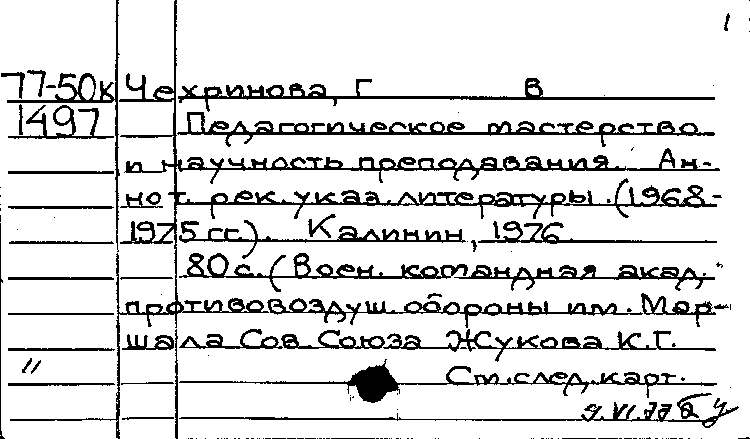 1
77-50к Чехринова, Г В
1497 Педагогическое мастерство
и научность преподавания. Ан-
нот. рек. указ. литературы. (1968-
1975 гг.). Калинин, 1976.
80 с. (Воен. командная акад.
противовоздуш. обороны им. Мар-
шала Сов. Союза Жукова К.Г.
" См. след. карт.
9.VI.77